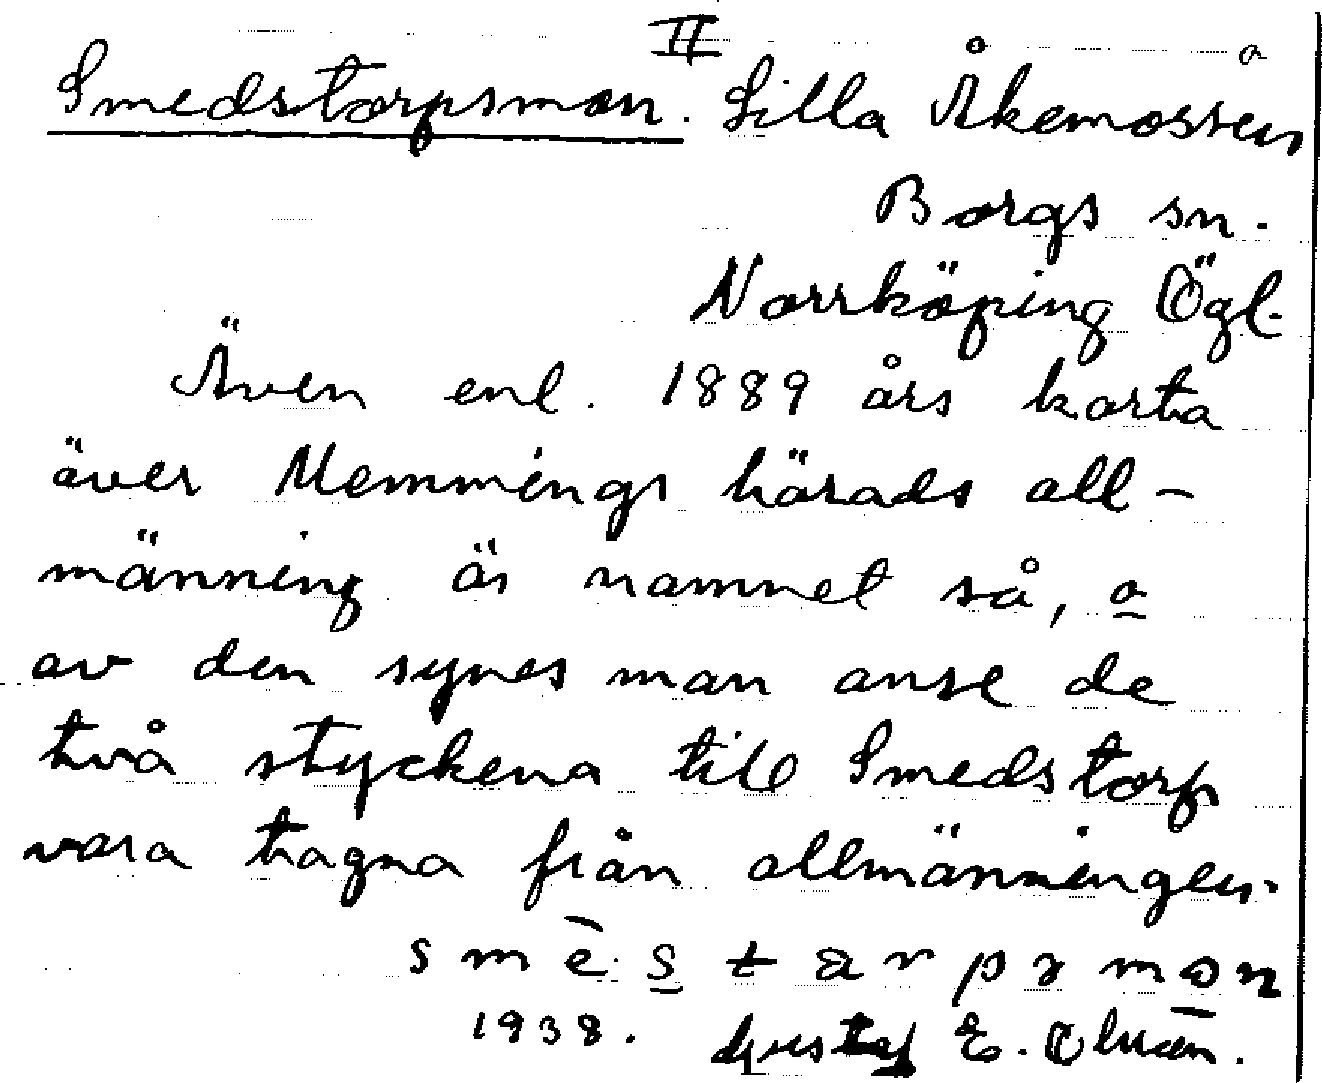 II
Smedstorpsmon. Lilla Åkemossen
a
Borgs sn.
Norrköping Ögl.
Även enl. 1889 års karta
över Memmings härads all-
männing är namnet så, o
av den synes man anse de
två styckena till Smedstorp
vara tagna från allmänningen.
1938. Gustaf E.